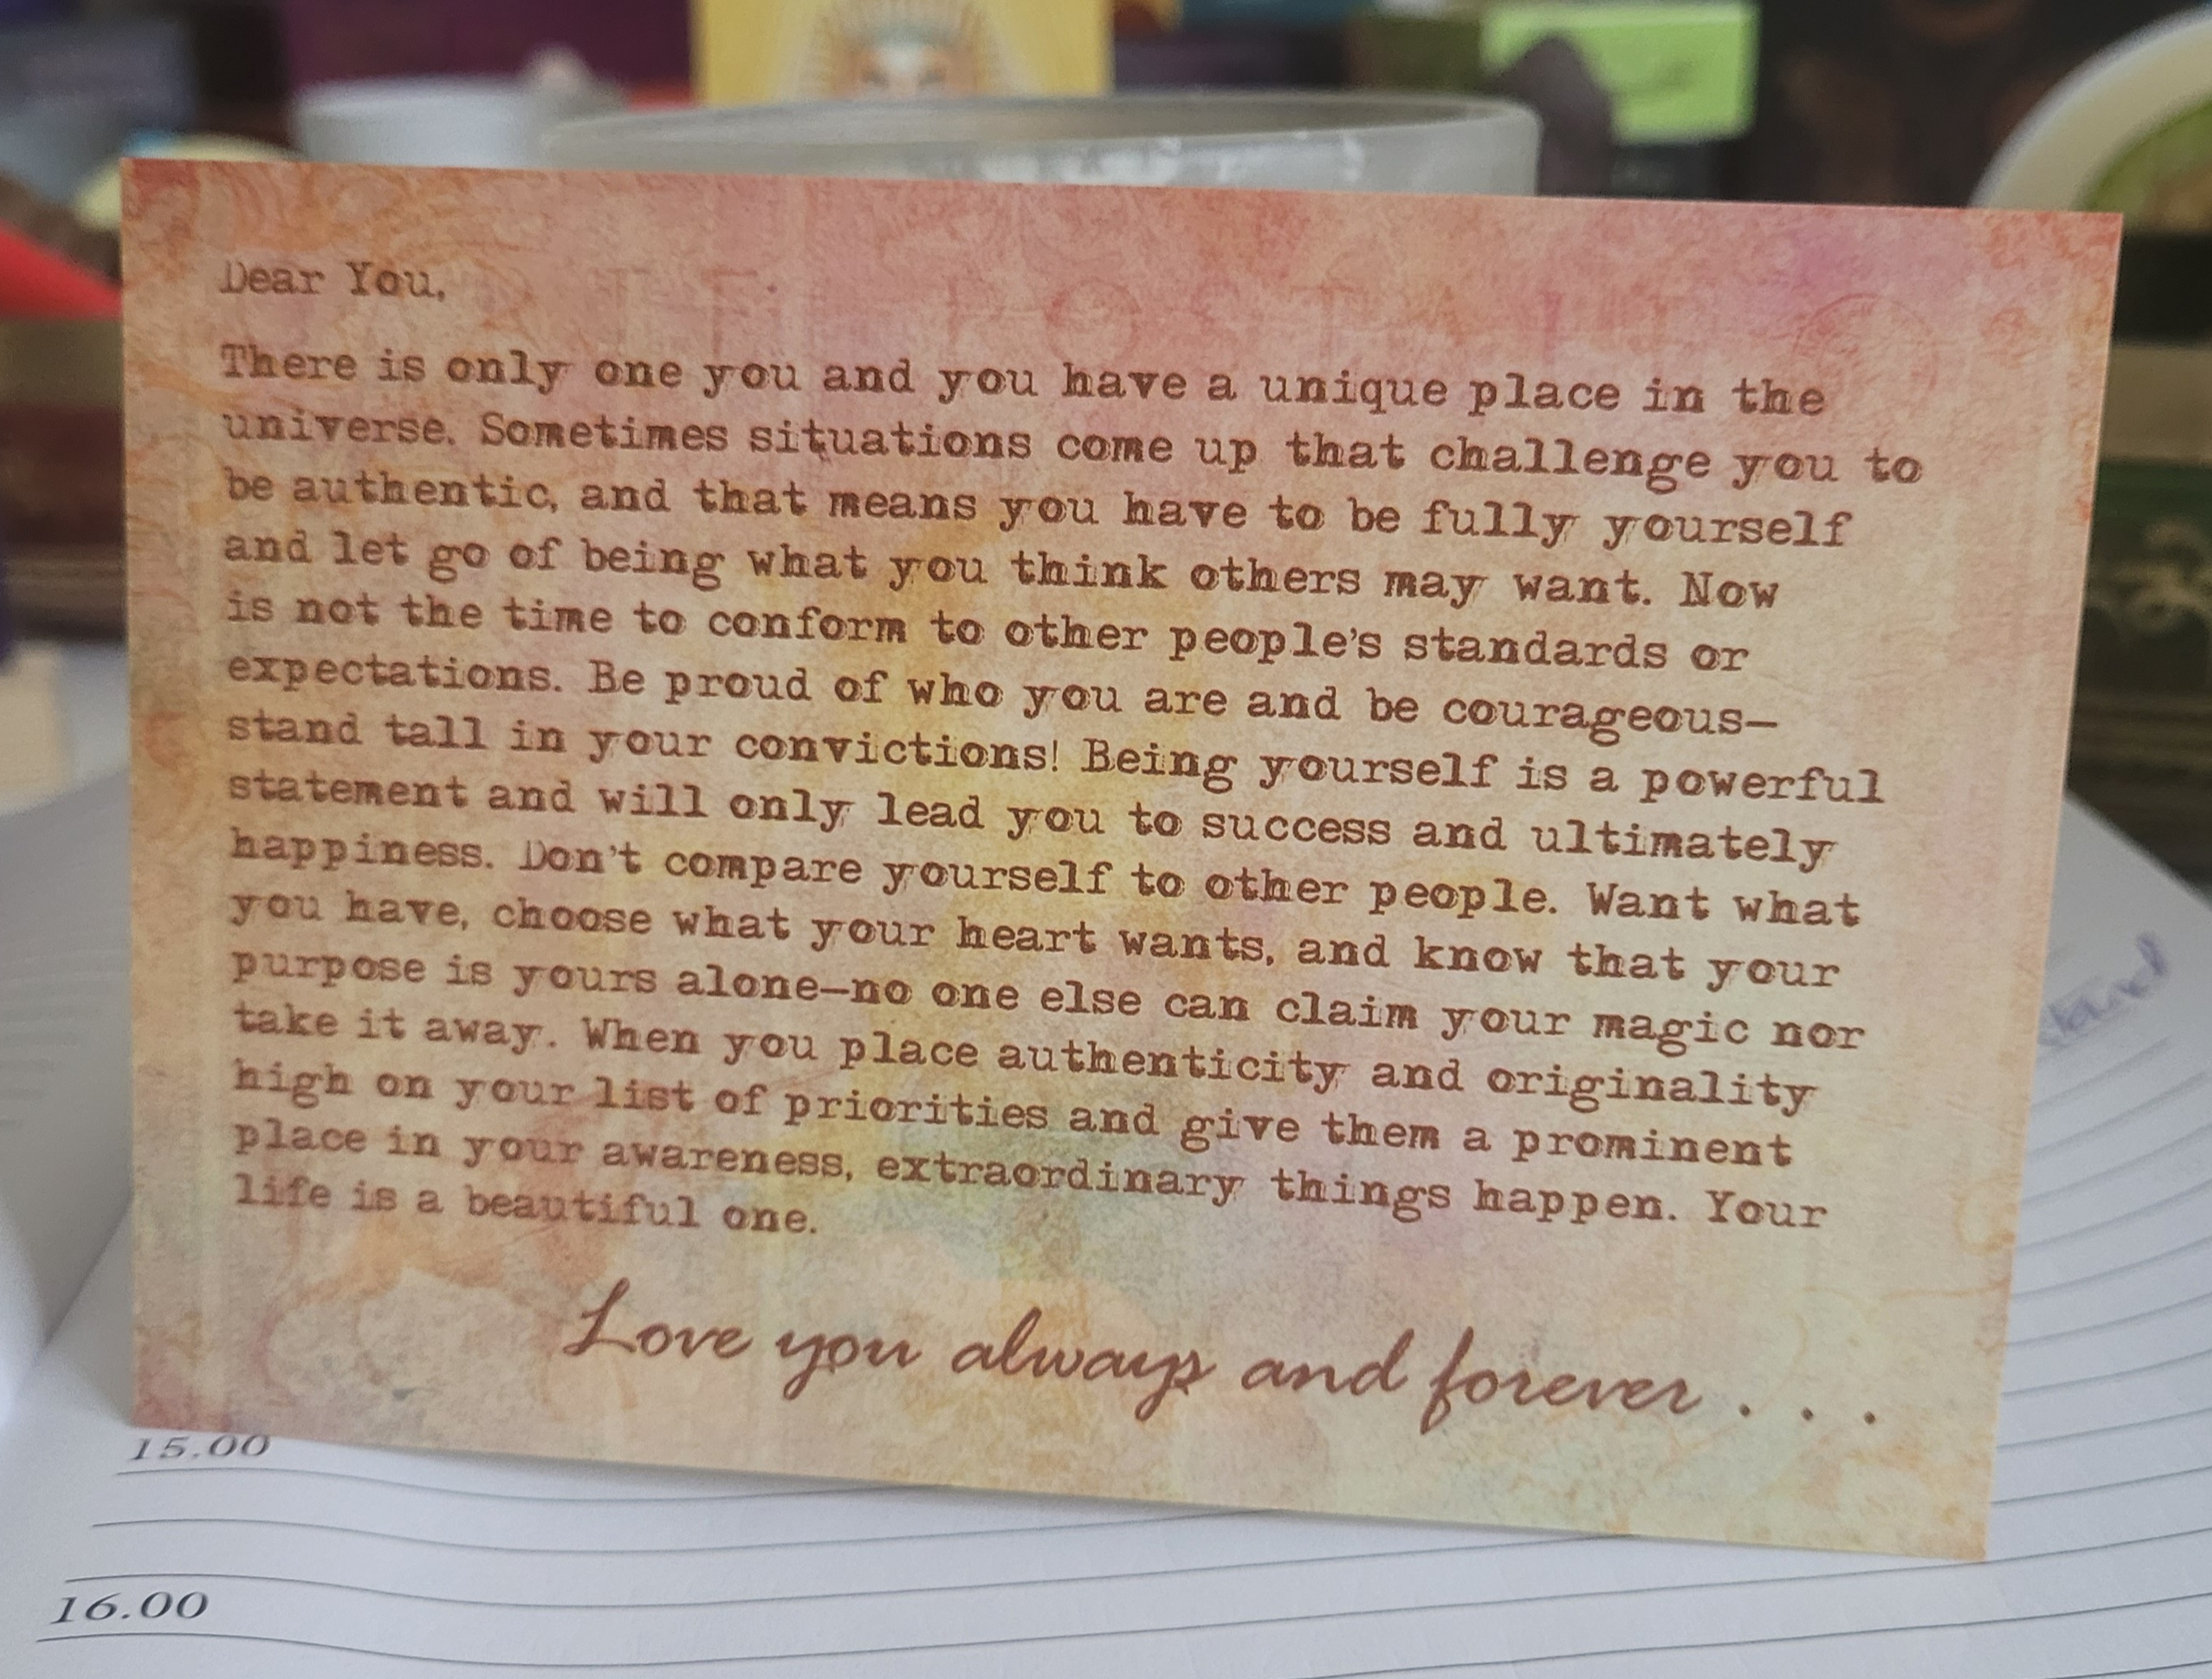 Dear You,
There is only one you and you have a unique place in the
universe. Sometimes situations come up that challenge you to
be authentic, and that means you have to be fully yourself
and let go of being what you think others may want. Now
is not the time to conform to other people's standards or
expectations. Be proud of who you are and be courageous—
stand tall in your convictions! Being yourself is a powerful
statement and will only lead you to success and ultimately
happiness. Don't compare yourself to other people. Want what
you have, choose what your heart wants, and know that your
purpose is yours alone—no one else can claim your magic nor
take it away. When you place authenticity and originality
high on your list of priorities and give them a prominent
place in your awareness, extraordinary things happen. Your
life is a beautiful one.
Love you always and forever . . .
15.00
16.00